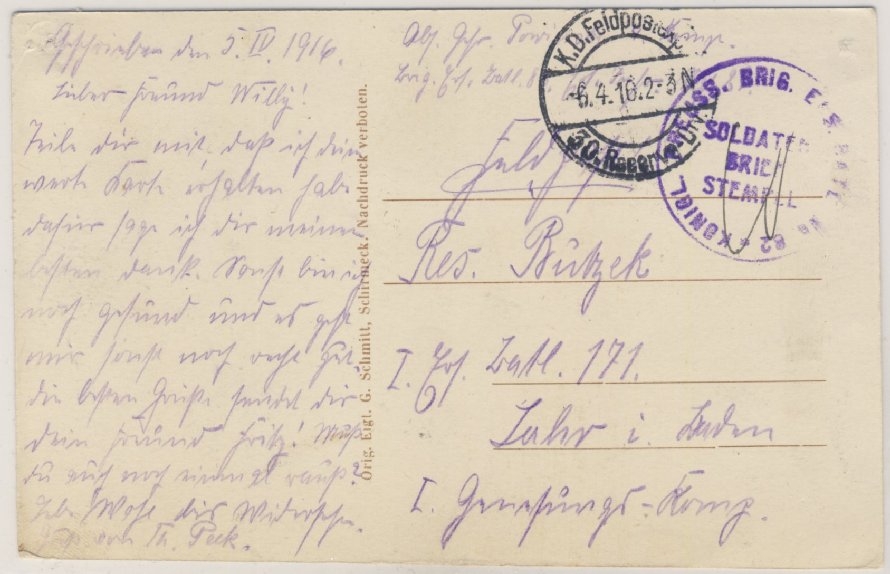 Geschrieben den 5. IV. 1916.
Lieber Freund Willy!
Teile dir mit, daß ich deine
werte Karte erhalten habe
dafür sage ich dir meinen
besten Dank. Sonst bin ich
noch gesund und es geht
mir sonst noch recht gut.
die besten Grüße sendet dir
dein Freund Fritz! Mußt
du auch noch einmal rauß?
Lebe Wohl bis Wiedersehn.
von Th. Peck.
Orig. Eigt. G. Schmitt, Schirmeck. Nachdruck verboten.
Abs. Gefr.
Brig. Ers. Batl.
K.D. Feldpostexp.
-6.4.16.2-3N
30. Reserve-Div.
KÖNIGL. PREUSS. BRIG. ERS. BATL. No 82
SOLDATEN
BRIEF
STEMPEL
Feldpost
Res. Butzek
I. Ers. Batl. 171.
Lahr i. Baden
I. Genesungs-Komp.